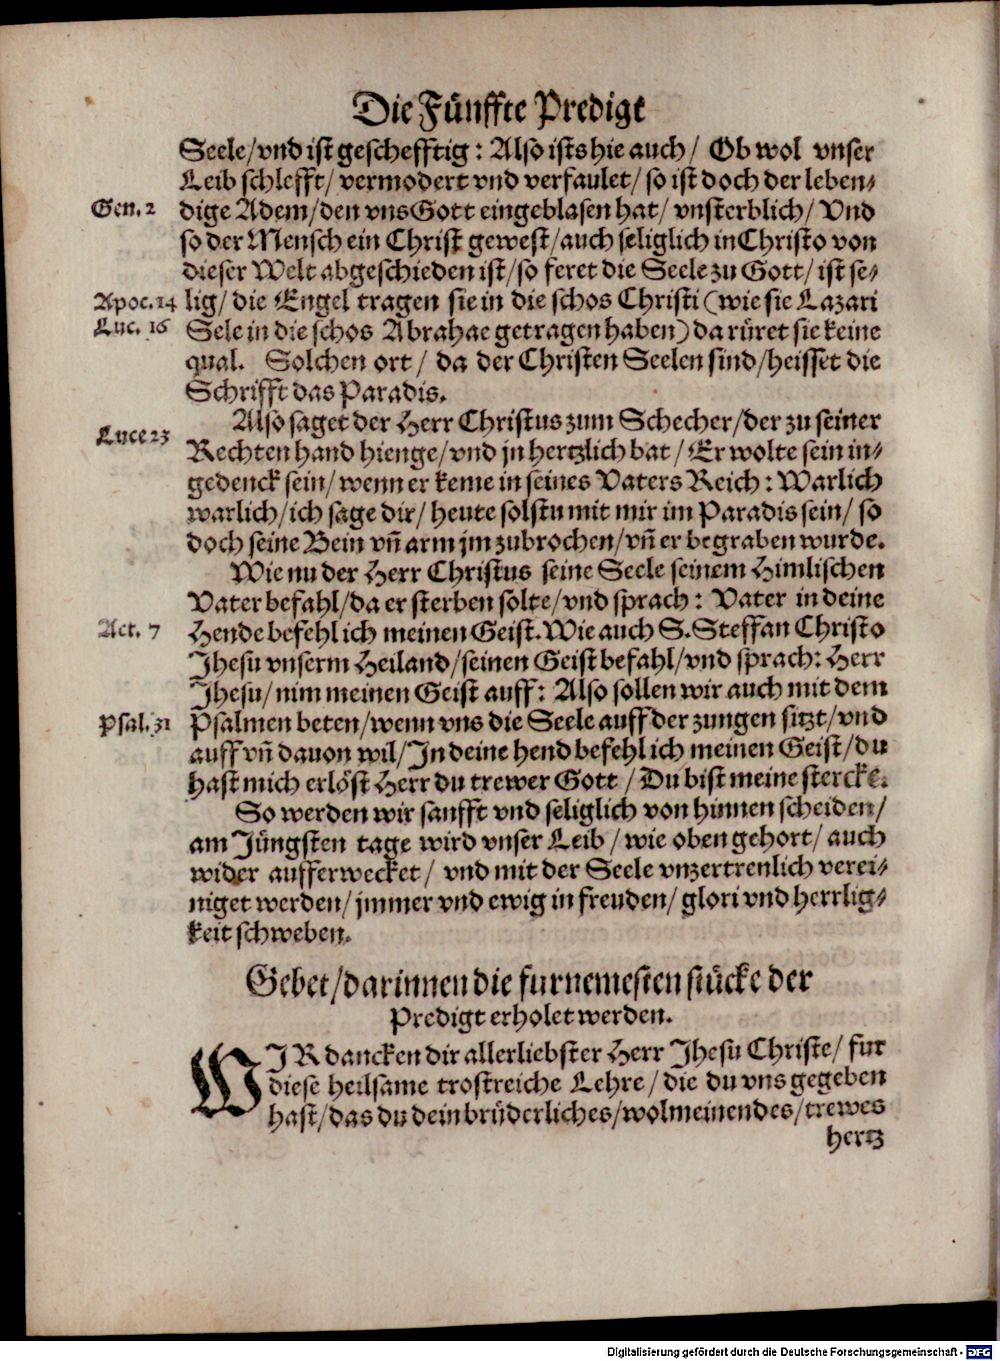 Die Fünffte Predigt
Seele/vnd ist geschefftig: Also ists hie auch/ Ob wol vnser
Leib schlefft/ vermodert vnd verfaulet/ so ist doch der leben-
Gen. 2 dige Adem/den vns Gott eingeblasen hat/ vnsterblich/ Vnd
so der Mensch ein Christ gewest/auch seliglich in Christo von
dieser Welt abgeschieden ist/so feret die Seele zu Gott/ ist se-
Apoc. 14 lig/ die Engel tragen sie in die schos Christi (wie sie Lazari
Luc. 16 Sele in die schos Abrahae getragen haben) da rüret sie keine
qual. Solchen ort/ da der Christen Seelen sind/heisset die
Schrifft das Paradis.
Also saget der Herr Christus zum Schecher/der zu seiner
Luce 23 Rechten hand hienge/vnd jn hertzlich bat/ Er wolte sein in-
gedenck sein/ wenn er keme in seines Vaters Reich: Warlich
warlich/ich sage dir/ heute solstu mit mir im Paradis sein/ so
doch seine Bein vñ arm jm zubrochen/vñ er begraben wurde.
Wie nu der Herr Christus seine Seele seinem Himlischen
Vater befahl/da er sterben solte/vnd sprach: Vater in deine
Act. 7 Hende befehl ich meinen Geist. Wie auch S. Steffan Christo
Jhesu vnserm Heiland/seinen Geist befahl/vnd sprach: Herr
Jhesu/ nim meinen Geist auff: Also sollen wir auch mit dem
Psal. 31 Psalmen beten/wenn vns die Seele auff der zungen sitzt/vnd
auff vñ dauon wil/In deine hend befehl ich meinen Geist/du
hast mich erlöst Herr du trewer Gott/ Du bist meine stercke.
So werden wir sanfft vnd seliglich von hinnen scheiden/
am Jüngsten tage wird vnser Leib/ wie oben gehort/ auch
wider aufferwecket/ vnd mit der Seele vnzertrenlich verei-
niget werden/ jmmer vnd ewig in freuden/ glori vnd herrlig-
keit schweben.
Gebet/darinnen die furnemesten stücke der
Predigt erholet werden.
WJR dancken dir allerliebster Herr Jhesu Christe/ fur
diese heilsame trostreiche Lehre/ die du vns gegeben
hast/das du dein brüderliches/wolmeinendes/trewes
hertz
Digitalisierung gefördert durch die Deutsche Forschungsgemeinschaft - DFG